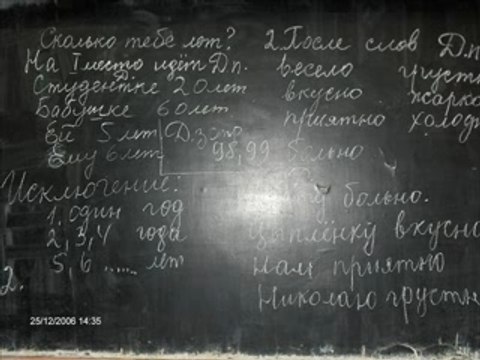 Сколько тебе лет?
На I место идёт Дп.
Студентке 20 лет
Бабушке 60 лет
Ей 5 лет
Ему 6 лет
Д.з
98, 99
Исключение:
1, один год
2, 3, 4 года
5, 6 ...... лет
2.
2. После слов Д.п
весело грустн
вкусно жарко
приятно холод
больно
больно.
Цыплёнку вкусно
Нам приятно
Николаю грустн
25/12/2006 14:35